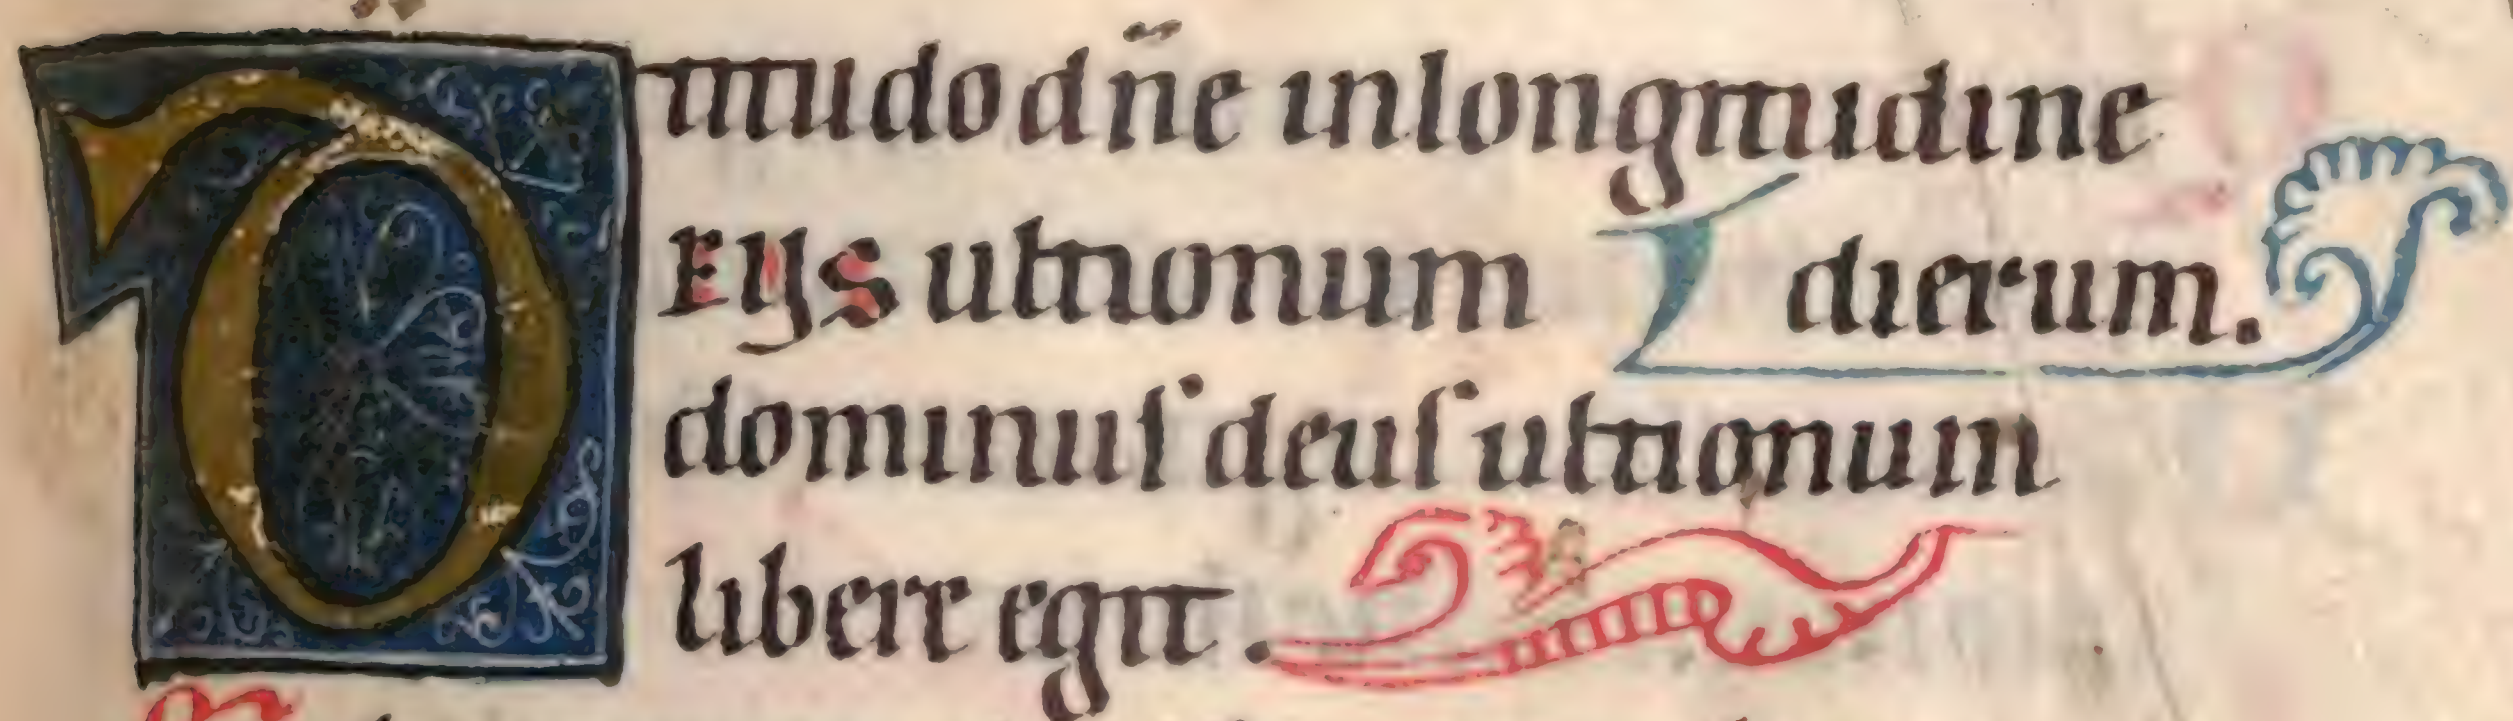 titudo dn̄e inlongitudine
D EƳS ultionum dierum.
dominuſ deuſ ultionum
libere egit.